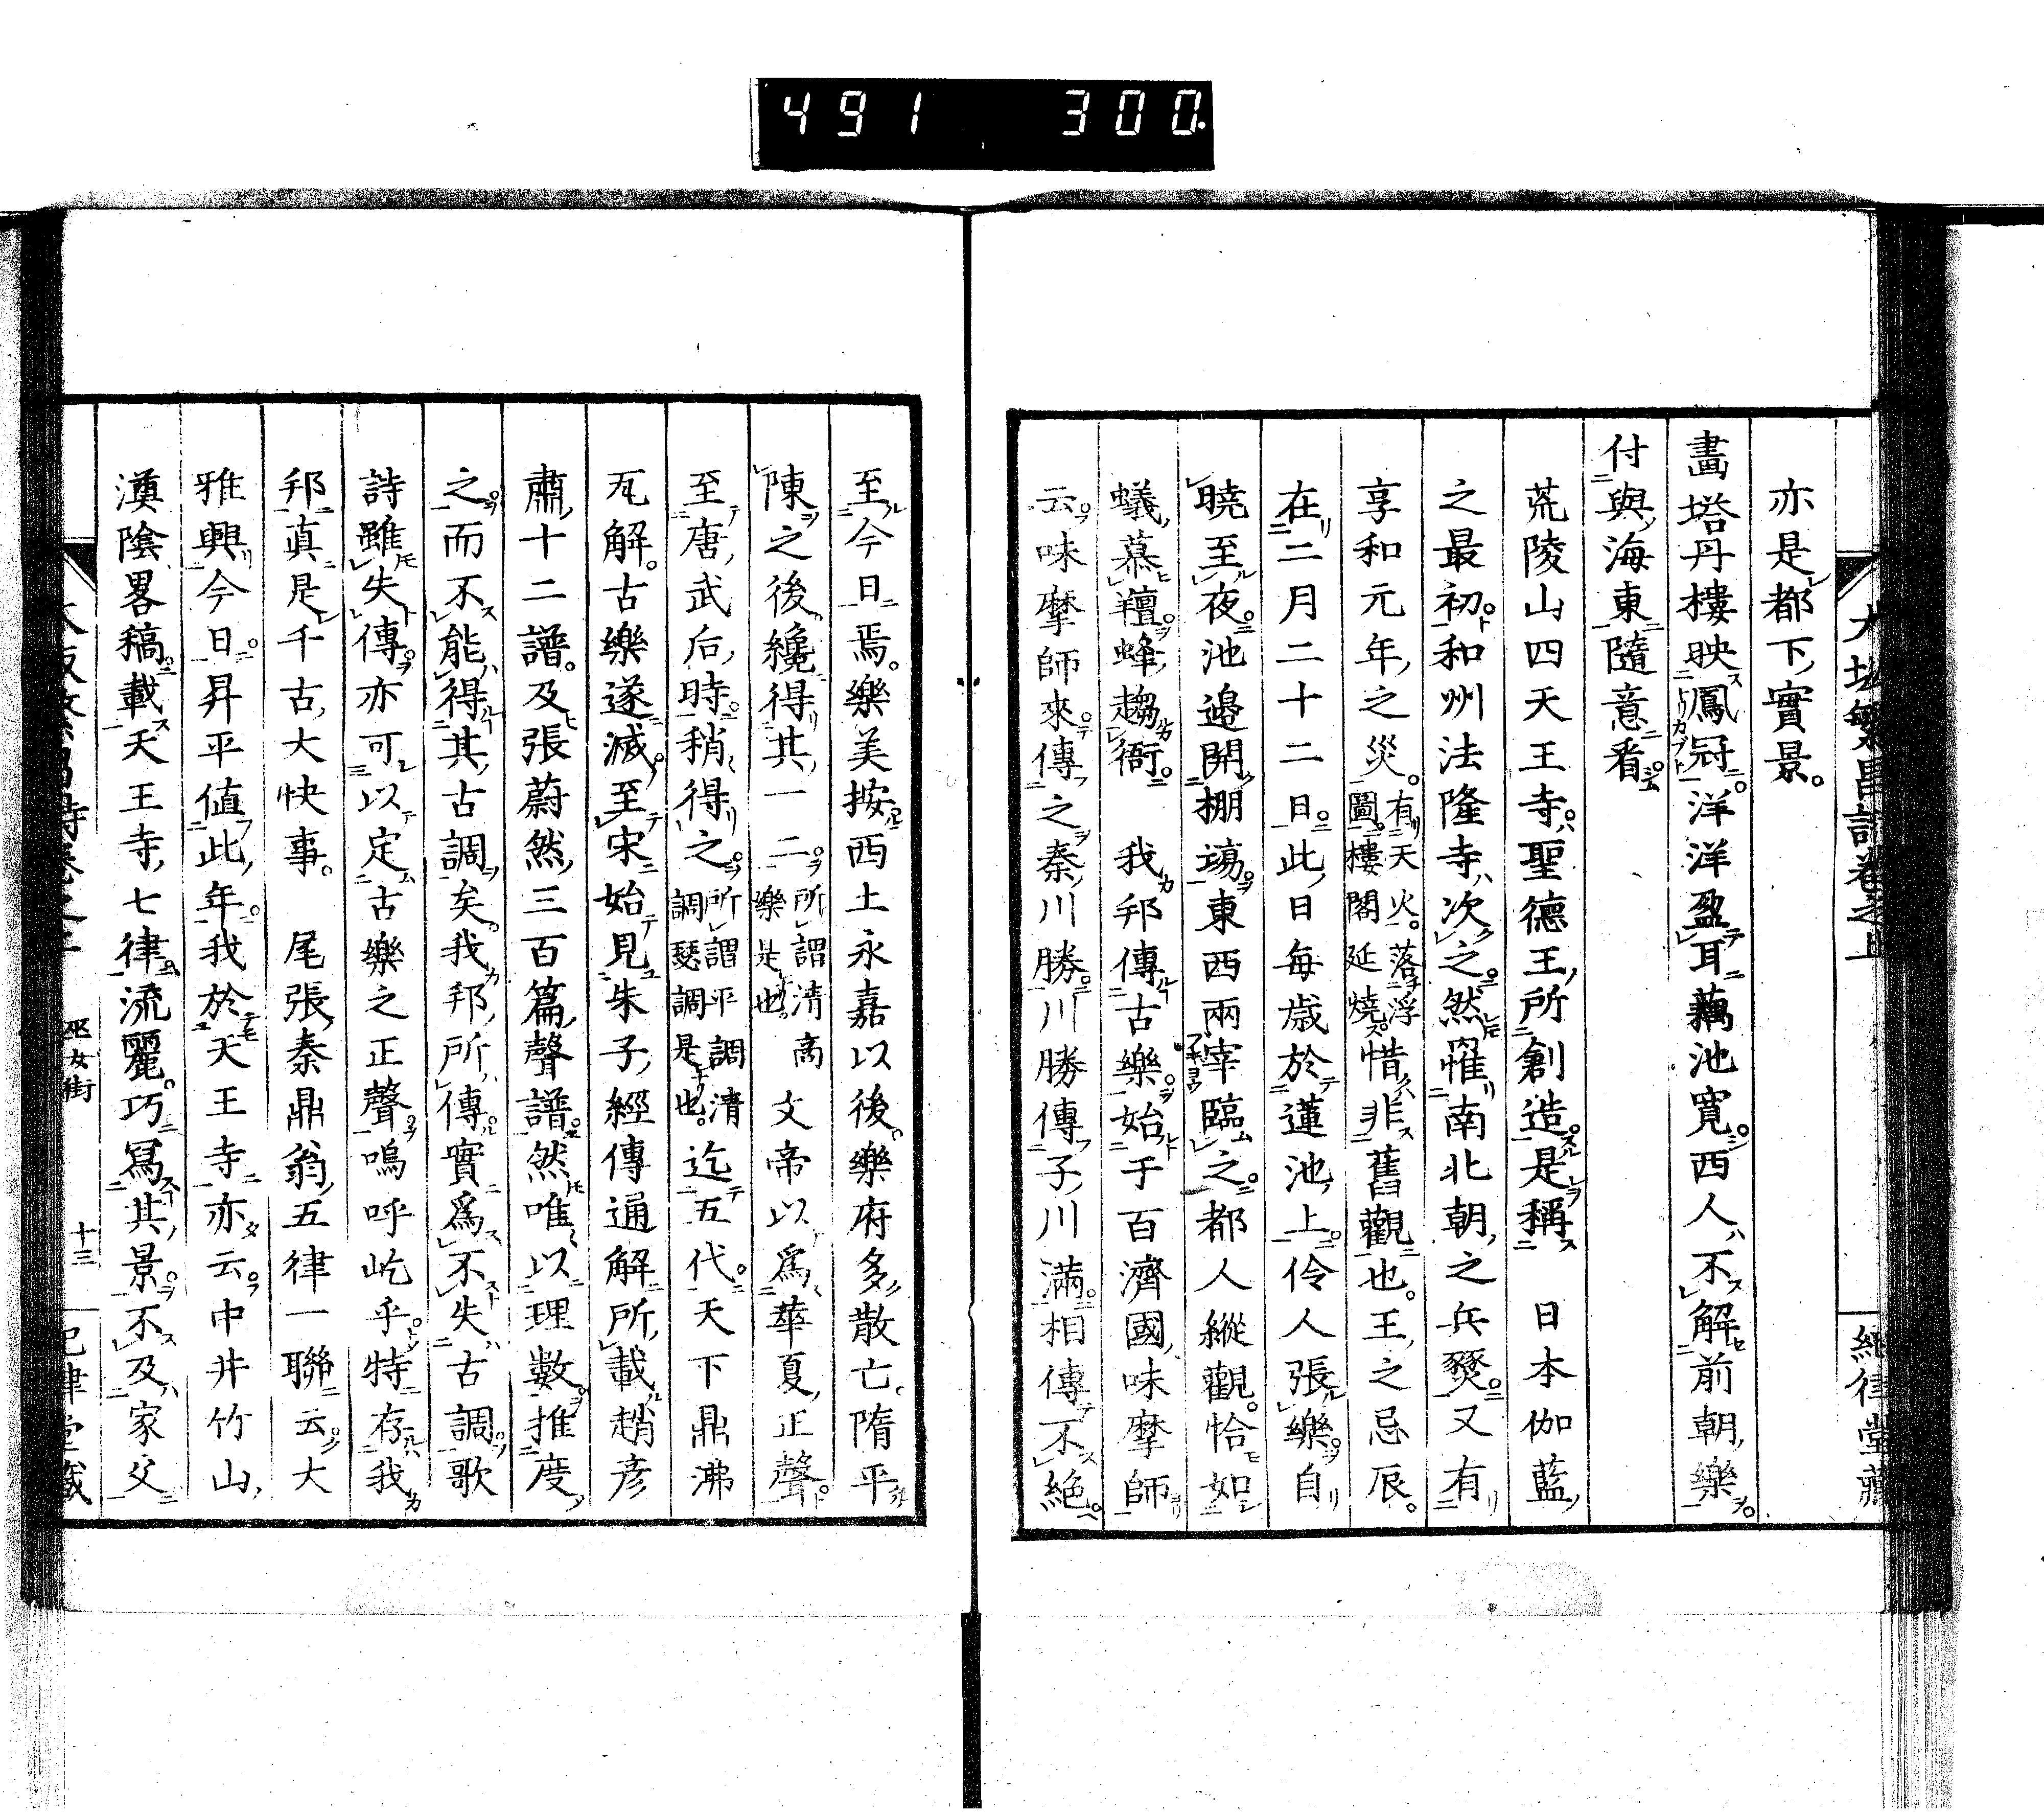 491 300
亦是都下實景。
畵塔丹樓映鳳冠。洋洋盈耳藕池寬。西人不解前朝樂
付與海東隨意看
荒陵山四天王寺。聖德王所創造。是稱 日本伽藍
之最初。和州法隆寺次之。然罹南北朝之兵燹。又有
享和元年之災。有天火。落浮圖。樓閣延燒惜非舊觀也。王之忌辰。
在二月二十二日。此日每歲於蓮池上。伶人張樂。自
曉至夜。池邉開棚塲。東西兩宰臨之。都人縱觀。恰如
蟻慕羶。蜂趨衙。 我邦傳古樂。始于百濟國味摩師
云。味摩師來。傳之秦川勝。川勝傳子川滿。相傳不絕。
至今日焉。樂美按西土永嘉以後。樂府多散亡。隋平
陳之後。纔得其一二。所謂清樂是也。 文帝以爲華夏正聲。
至唐武后時。稍得之。所謂平調清調瑟調是也。迄五代。天下鼎沸
瓦解。古樂遂滅。至宋始見朱子經傳通解所載趙彥
肅十二譜。及張蔚然三百篇聲譜。然唯以理數。推度
之。而不能得其古調矣。我邦所傳。實爲不失古調。歌
詩雖失傳。亦可以定古樂之正聲。嗚呼屹乎。特存我
邦。眞是千古大快事。 尾張秦鼎翁五律一聯云。大
雅興今日。昇平値此年。我於天王寺亦云。中井竹山
漢陰畧稿。載天王寺七律。流麗。巧寫其景。不及家父
巫女街
十三